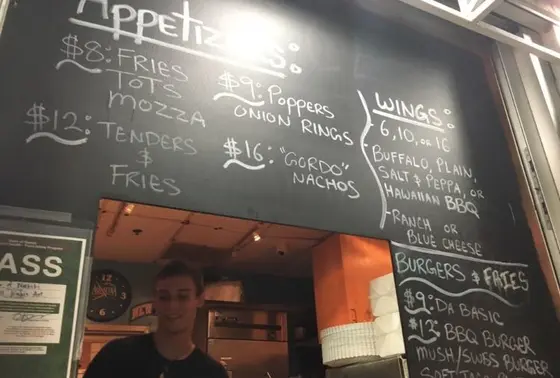 Appetizers:
$8: FRIES
TOTS
MOZZA
$12: TENDERS
&
FRIES
$9: POPPERS
ONION RINGS
$16: "GORDO"
NACHOS
WINGS:
6, 10, OR
BUFFALO, PLAIN,
SALT & PEPPA, OR
HAWAIIAN BBQ
-RANCH OR
BLUE CHEESE
BURGERS & FRIES
$9: DA BASIC
$12: BBQ BURGER
MUSH/SWISS BURGER
ASS